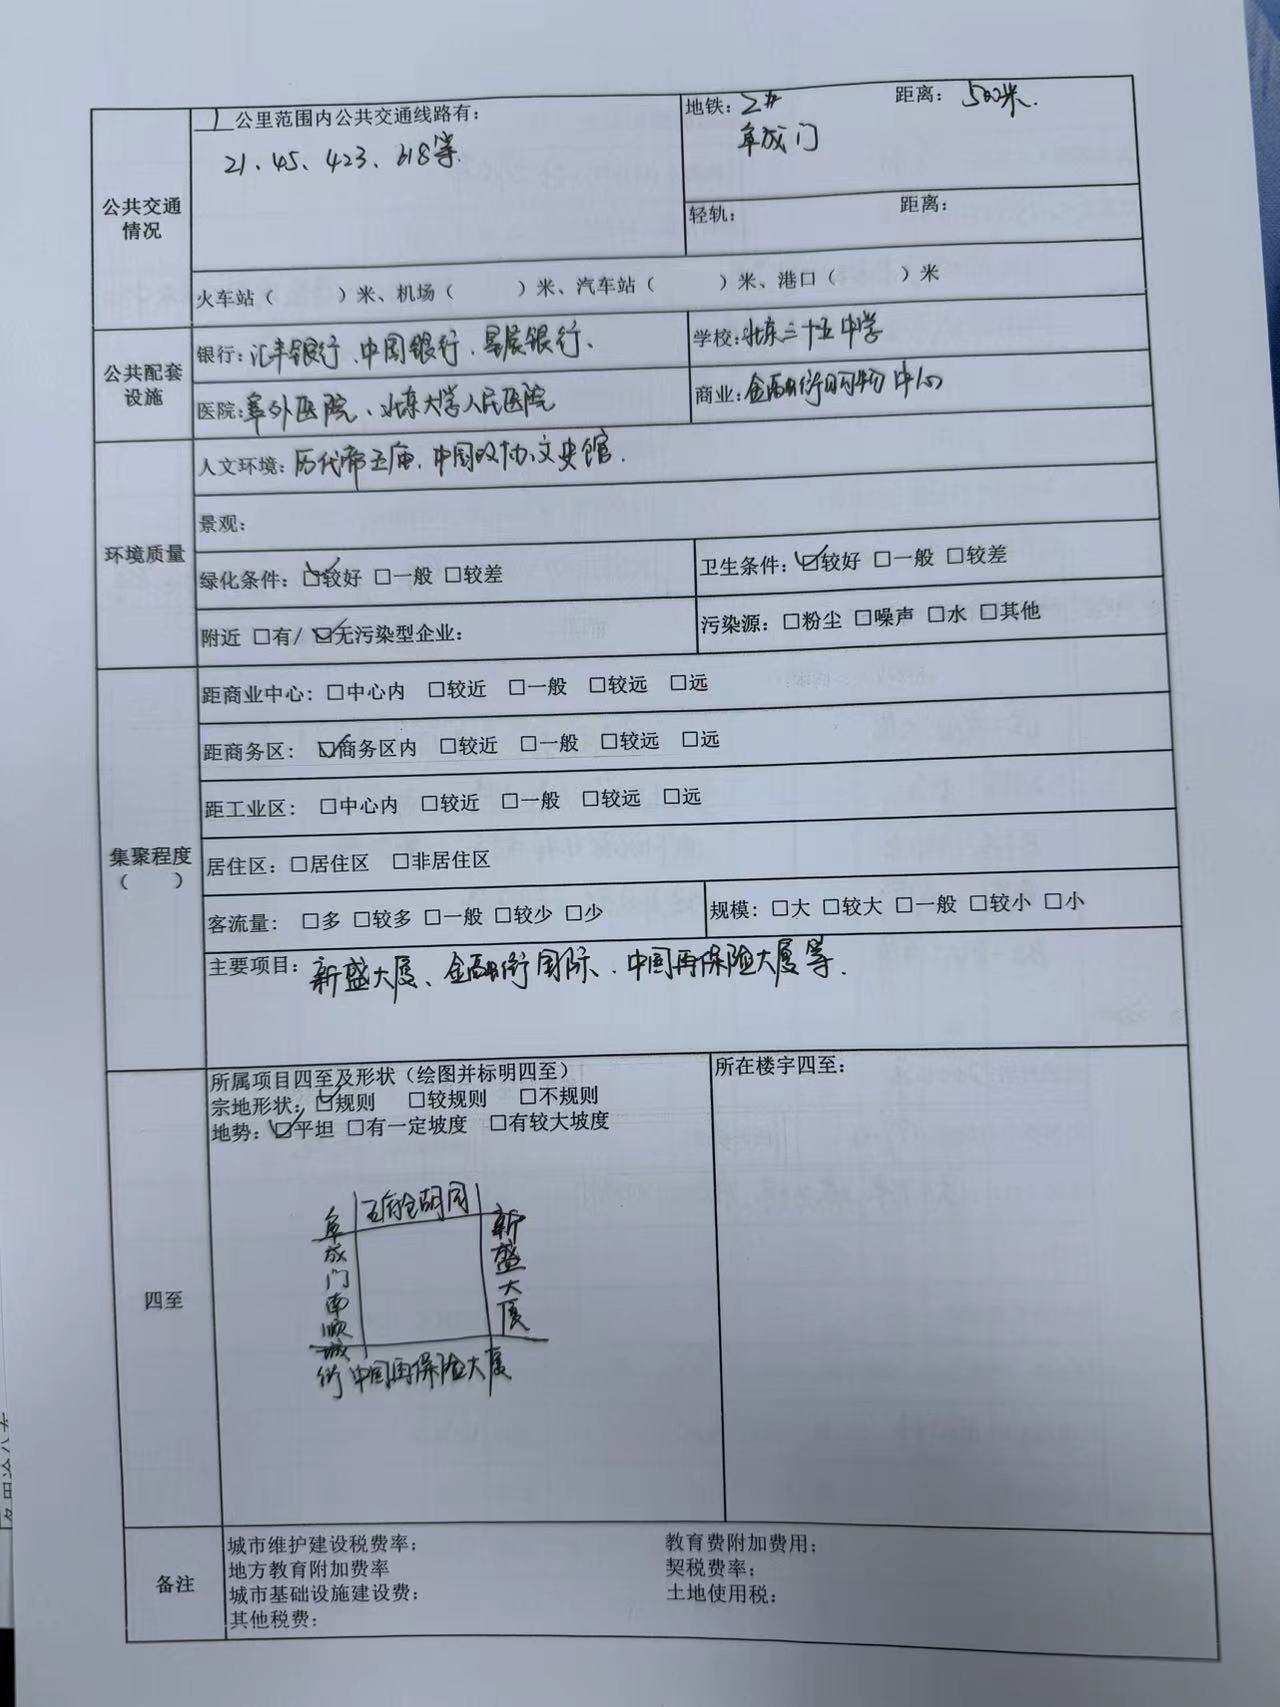 公共交通情况
1公里范围内公共交通线路有：
21、45、423、618等.
地铁：2# 距离：500米.
阜成门
轻轨： 距离：
火车站（ ）米、机场（ ）米、汽车站（ ）米、港口（ ）米
公共配套设施
银行：汇丰银行、中国银行、星展银行、
学校：北京三十五中学
医院：阜外医院、北京大学人民医院
商业：金融街购物中心
环境质量
人文环境：历代帝王庙、中国政协文史馆.
景观：
绿化条件：☑较好 □一般 □较差
卫生条件：☑较好 □一般 □较差
附近 □有/☑无污染型企业：
污染源：□粉尘 □噪声 □水 □其他
集聚程度（ ）
距商业中心：□中心内 □较近 □一般 □较远 □远
距商务区：☑商务区内 □较近 □一般 □较远 □远
距工业区：□中心内 □较近 □一般 □较远 □远
居住区：□居住区 □非居住区
客流量：□多 □较多 □一般 □较少 □少
规模：□大 □较大 □一般 □较小 □小
主要项目：新盛大厦、金融街国际、中国再保险大厦等.
四至
所属项目四至及形状（绘图并标明四至）
宗地形状：☑规则 □较规则 □不规则
地势：☑平坦 □有一定坡度 □有较大坡度
王府仓胡同
阜成门南顺城街
新盛大厦
中国再保险大厦
所在楼宇四至：
备注
城市维护建设税费率： 教育费附加费用：
地方教育附加费率 契税费率：
城市基础设施建设费： 土地使用税：
其他税费：